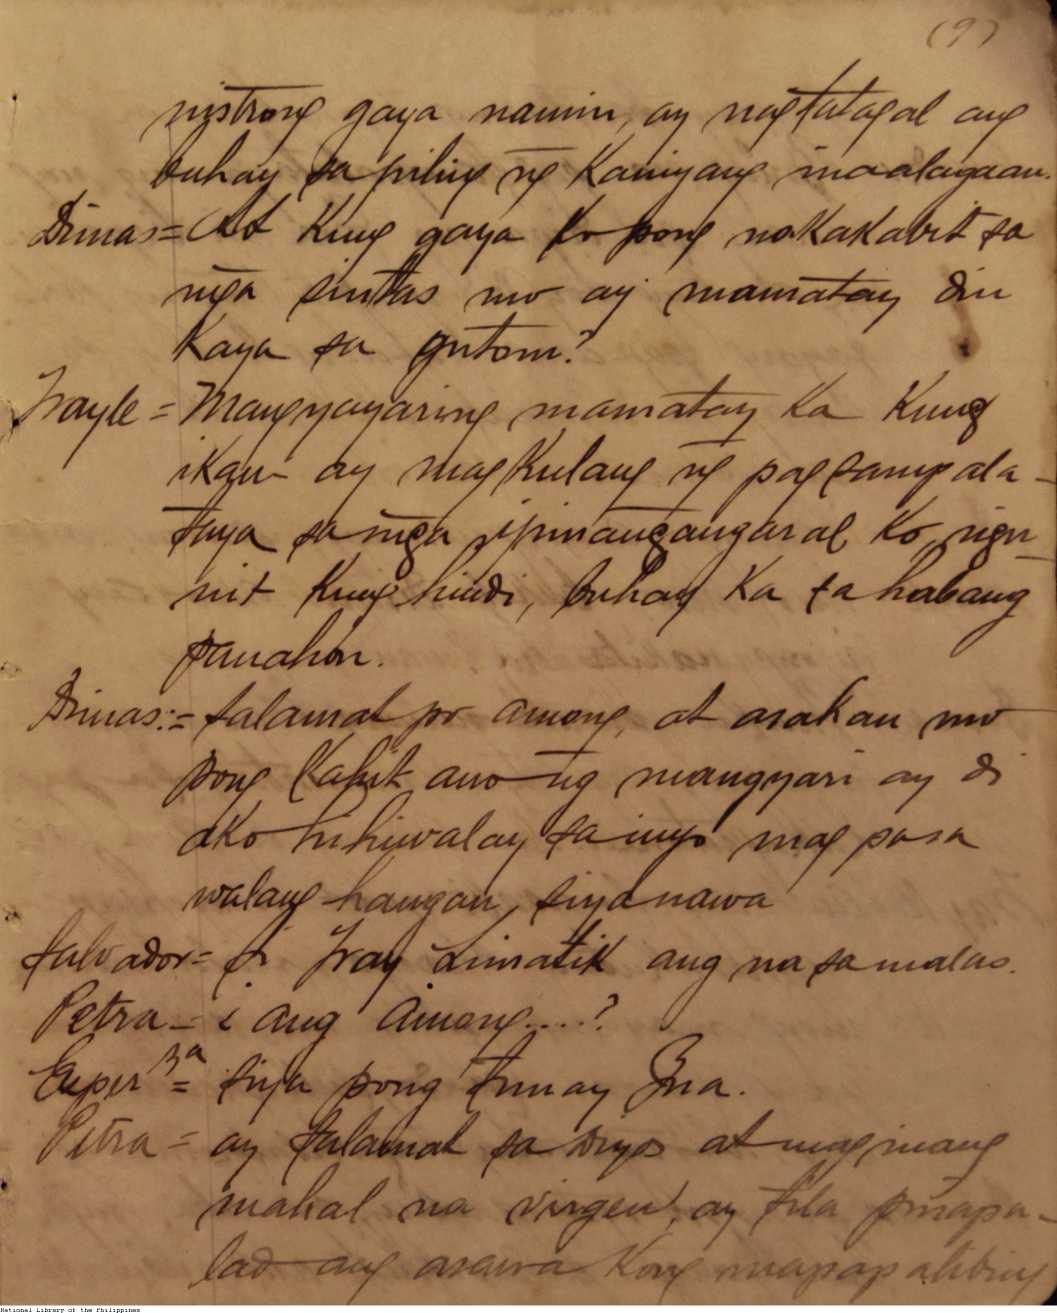 (9)
nistrong gaya namin, ay nagtatagal ang
buhay sa piling ng Kaniyang inaalagaan.
Dimas = At Kung gaya ko pong nakakabit sa
mga sintas mo ay mamatay din
Kaya sa gutom?
Frayle = Mangyayaring mamatay ka Kung
ikaw ay magkulang ng pagsampala-
taya sa mga ipinangangaral Ko, ngu-
nit Kung hindi, buhay Ka sa habang
panahon.
Dimas:= Salamat po among, at asahan mo
pong Kahit ano ng mangyari ay di
ako hihiwalay sa inyo mag pasa
walang hangan, siya nawa
Salvador = Si Fray Limatik ang na sa malas.
Petra - ¿ Ang Among....?
Esper za = Siya pong tunay Gna.
Petra = ay salamat sa Diyos at mag inang
mahal na virgen, ay tila pinapa-
lad ang asawa Kong mapapalibing
National Library of the Philippines